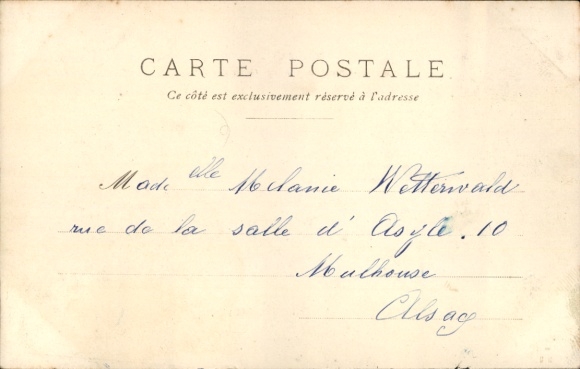 CARTE POSTALE
Ce côté est exclusivement réservé à l'adresse
Madelle Melanie Wetterwald
rue de la salle d'Asyle. 10
Mulhouse
Alsac